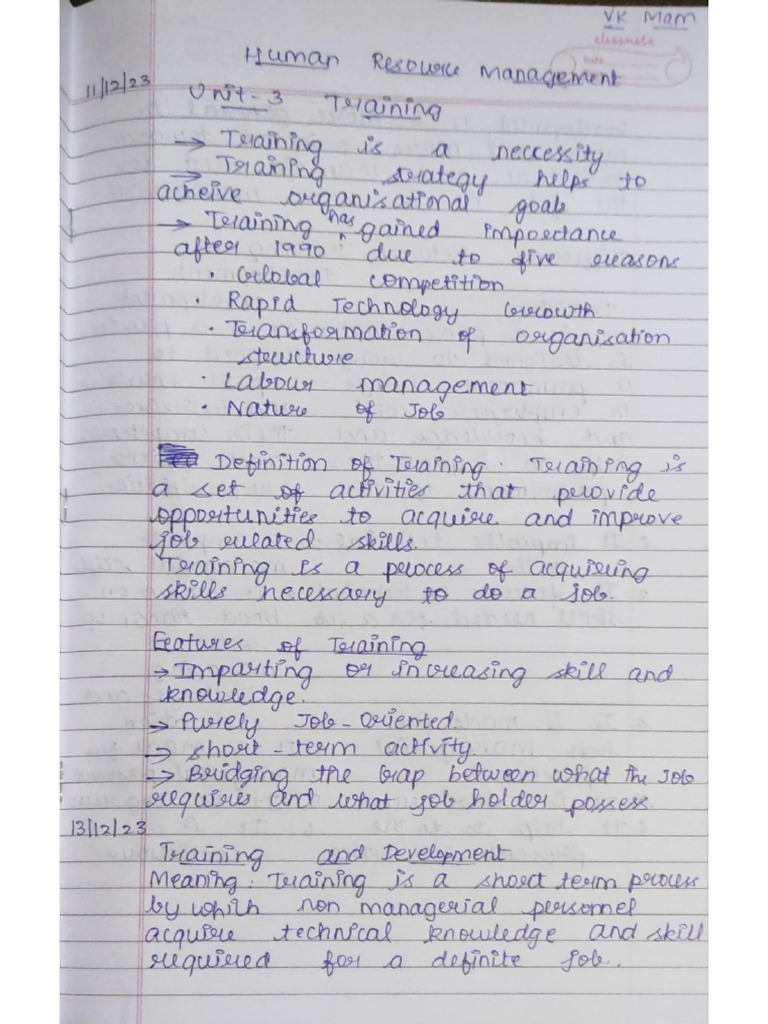 VK Mam
classmate
Date
Human Resource Management
11/12/23
Unit-3 Training
→ Training is a neccessity
→ Training strategy helps to
acheive organisational goals
→ Training has gained importance
after 1990 due to five reasons
• Global competition
• Rapid Technology Growth
• Transformation of organisation
structure
• Labour management
• Nature of Job
Definition of Training. Training is
a set of activities that provide
opportunities to acquire and improve
job related skills.
Training is a process of acquiring
skills necessary to do a job.
Features of Training
→ Imparting or increasing skill and
knowledge.
→ Purely Job-oriented.
→ short-term activity.
→ Bridging the Gap between what the Job
requires and what job holder possess
13/12/23
Training and Development
Meaning: Training is a short term process
by which non managerial personnel
acquire technical knowledge and skill
required for a definite job.